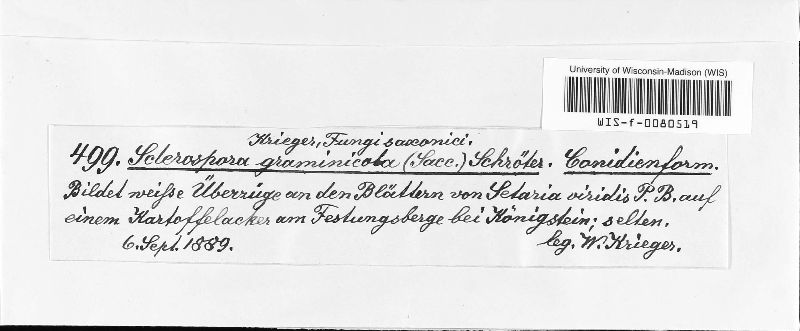 University of Wisconsin-Madison (WIS)
WIS-f-0080519
Krieger, Fungi saxonici.
499. Sclerospora graminicola (Sacc.) Schröter. Conidienform.
Bildet weiſse Überzüge an den Blättern von Setaria viridis P. B. auf
einem Kartoffelacker am Festungsberge bei Königstein; selten.
6. Sept. 1889. leg. W. Krieger.